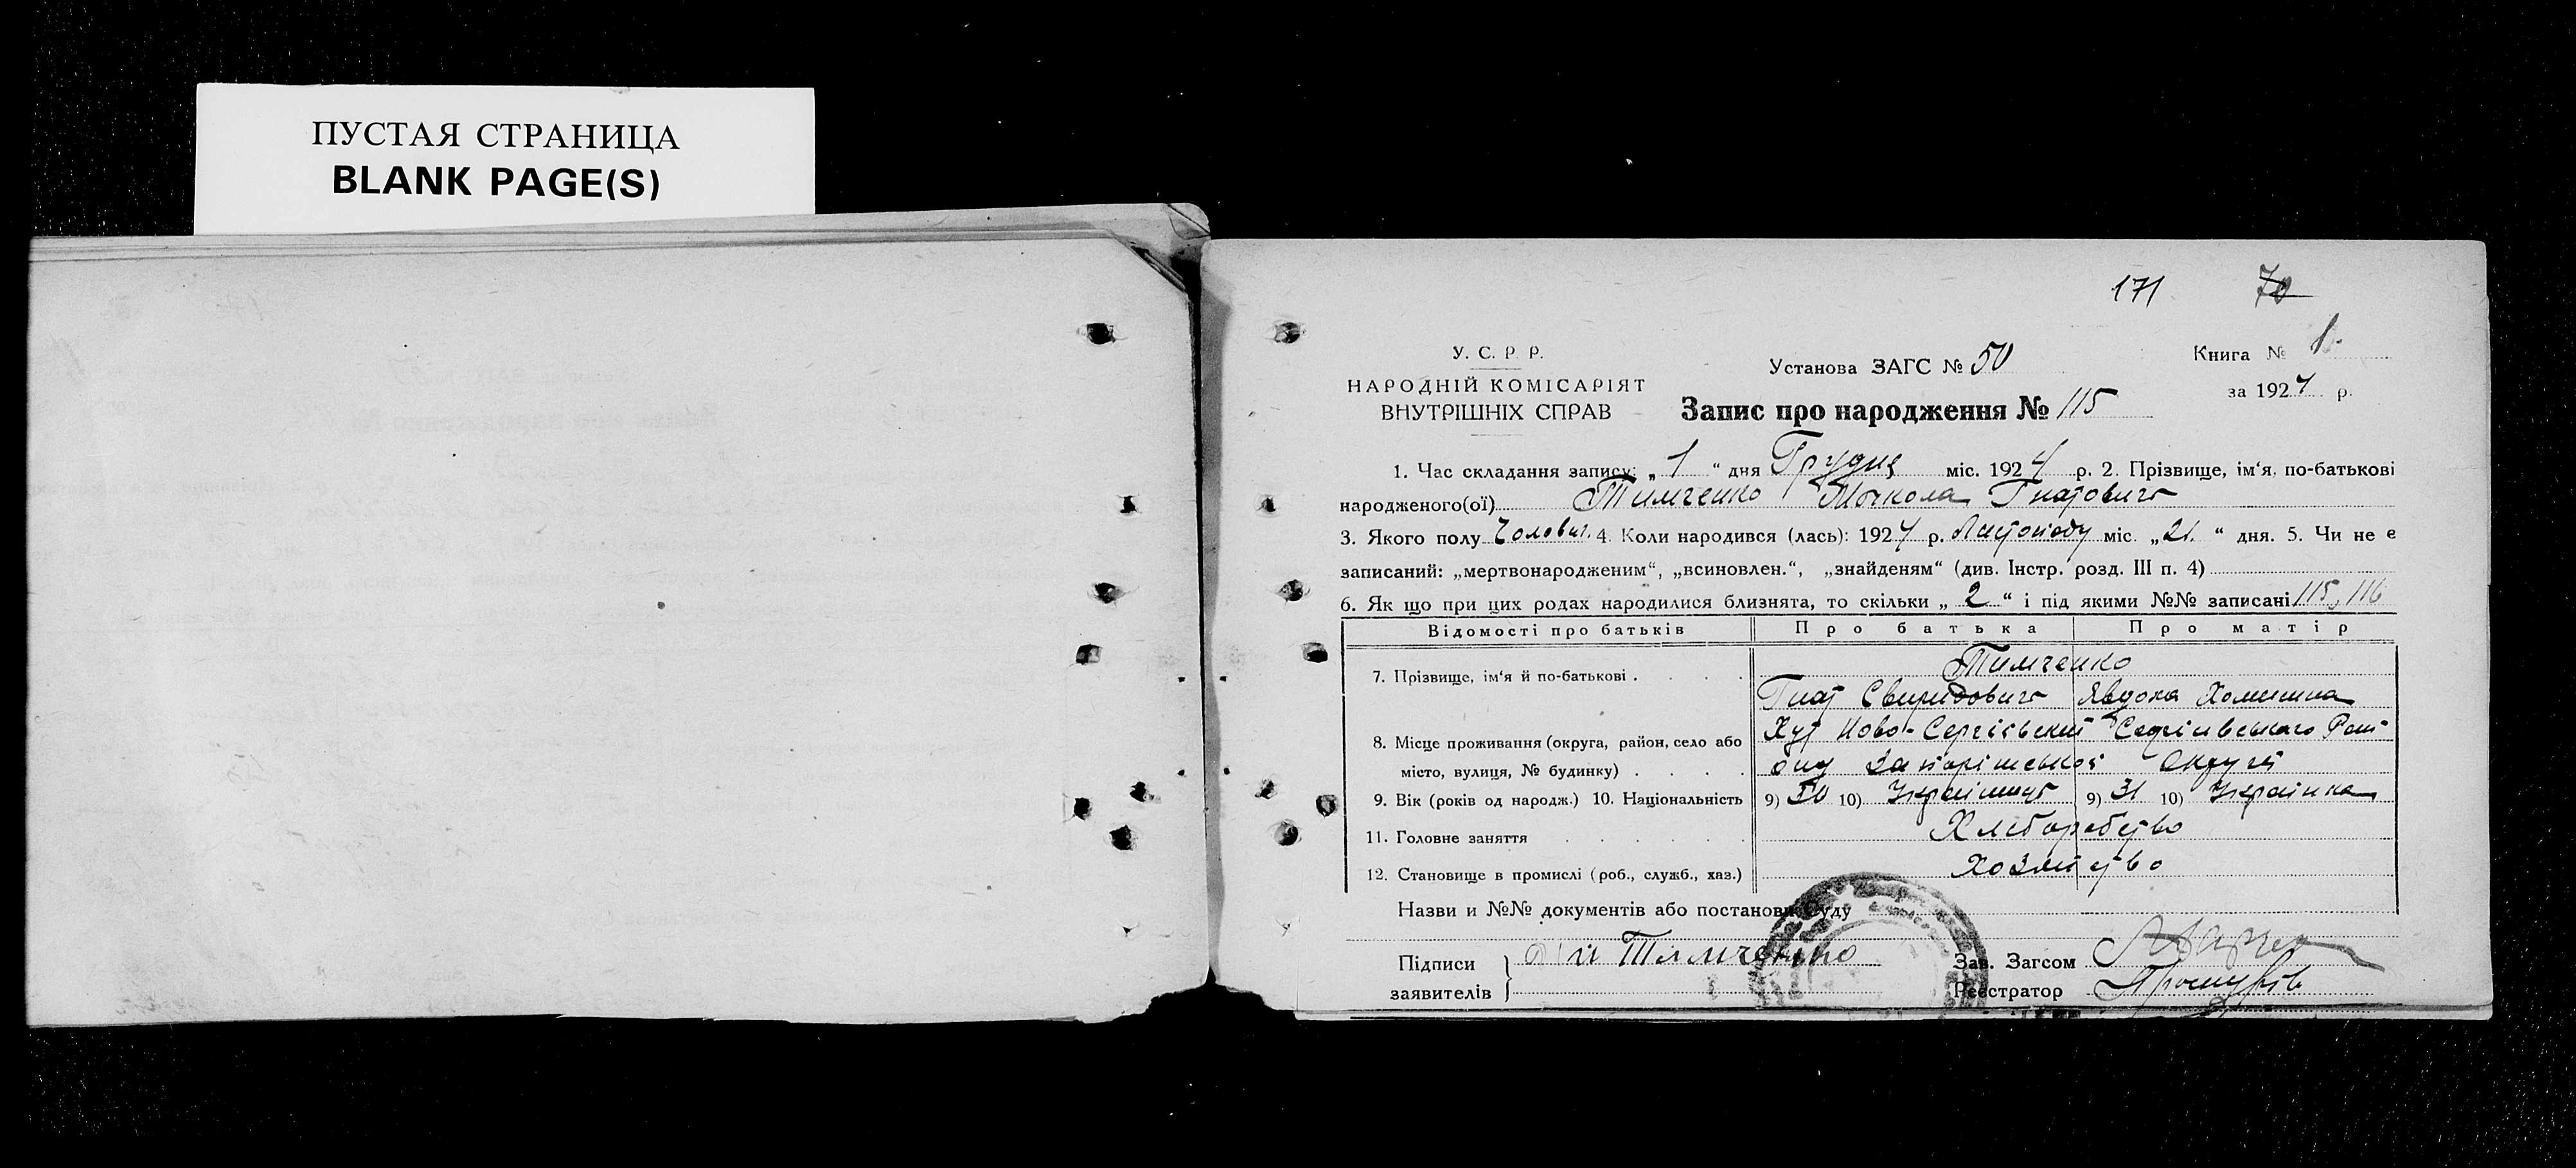 ПУСТАЯ СТРАНИЦА
BLANK PAGE(S)
171 70
У. С. Р. Р.
НАРОДНІЙ КОМІСАРІЯТ
ВНУТРІШНІХ СПРАВ
Установа ЗАГС № 50
Запис про народження № 115
Книга № 1
за 1924 р.
1. Час складання запису: „ 1 “ дня Грудня міс. 1924 р. 2. Прізвище, ім‘я, по-батькові
народженого(ої) Тимченко Микола Гнатович
3. Якого полу Чоловіч. 4. Коли народився (лась): 1924 р. Листопаду міс. „21. “ дня. 5. Чи не є
записаний: „мертвонародженим“, „всиновлен.“, „знайденям“ (див. Інстр. розд. III п. 4)
6. Як що при цих родах народилися близнята, то скільки „ 2 “ і під якими №№ записані 115, 116
Відомості про батьків Про батька Про матір
7. Прізвище, ім‘я й по-батькові . Тимченко
Гнат Свиридович Явдоха Хомишна
8. Місце проживання (округа, район, село або Хут Ново-Сергієвский Софіівського Рай
місто, вулиця, № будинку) . ону Запоріжської Округи
9. Вік (років од народж.) 10. Національність 9) 30 10) Украінець 9) 31 10) Украінка
11. Головне заняття Хлеборобство
12. Становище в промислі (роб., служб., хаз.) Хозяйство
Назви и №№ документів або постанови Суду
Підписи
заявителів
Тимченко
Зав. Загсом
Реєстратор